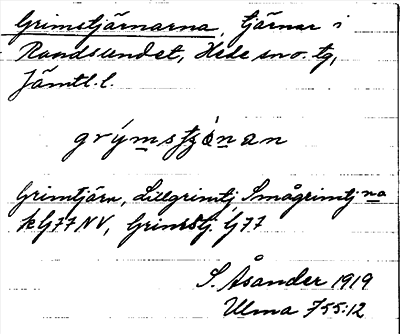 Grimstjärnarna, tjärnar i
Randsundet, Hede sn o. tg,
Jämtl. l.
Grimtjärn, Lillgrimtj Smågrimtj na
G77 NV, Grimstj. G77
S. Åsander 1919
Ulma 755:12